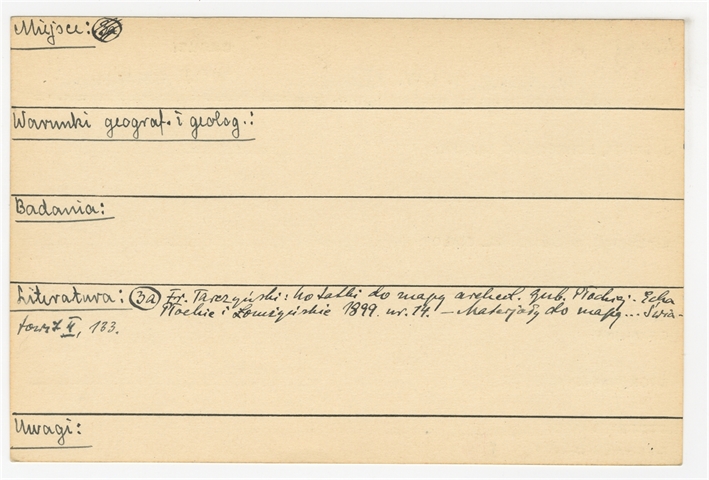 Miejsce:
Warunki geograf. i geolog.:
Badania:
Literatura: 3a Fr. Tarczyński: Notatki do mapy archeol. gub. Płockiej. Echa
Płockie i Łomżyńskie 1899. nr. 14. — Materjały do mapy... Świa-
towit II, 133.
Uwagi: